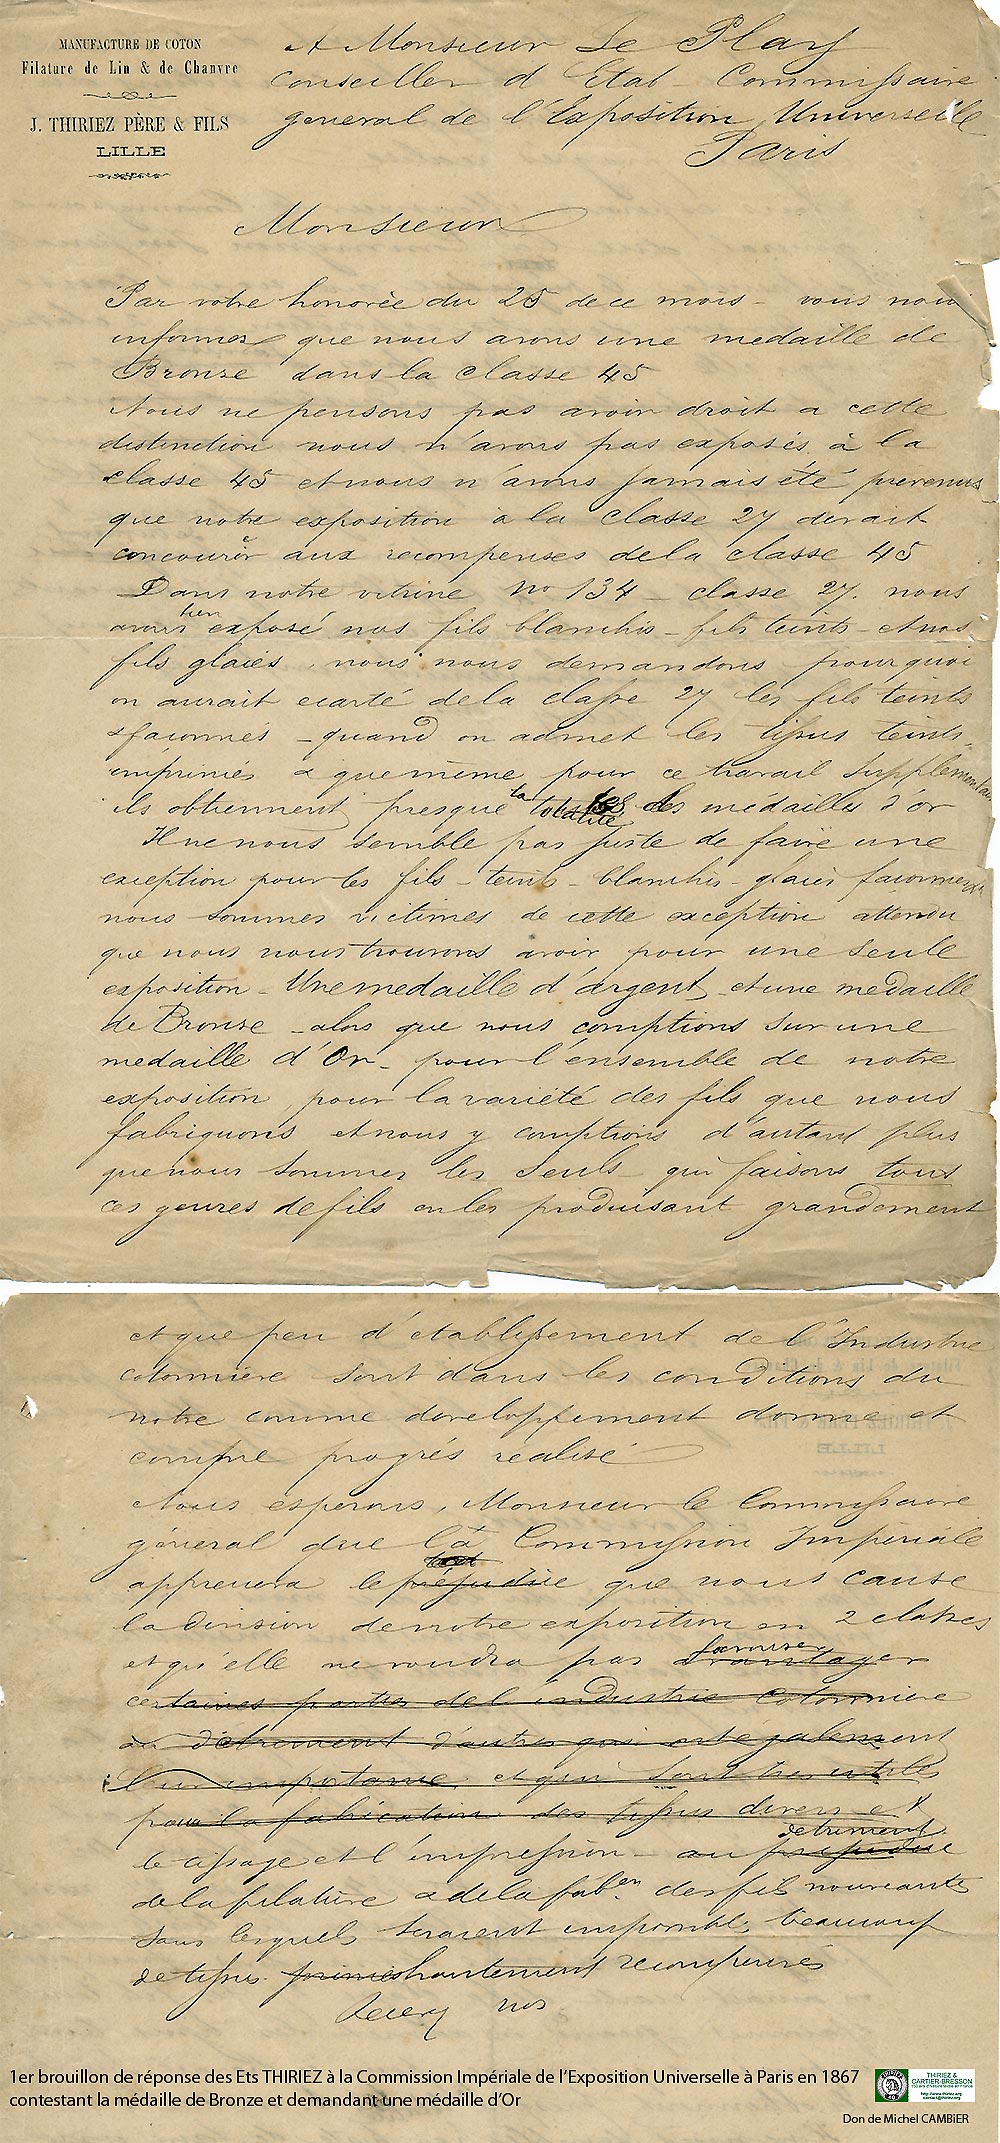 MANUFACTURE DE COTON
Filature de Lin & de Chanvre
J. THIRIEZ PÈRE & FILS
LILLE
A Monsieur Le Play
Conseiller d'Etat Commissaire
general de l'Exposition Universelle
Paris
Monsieur
Par votre honorée du 25 de ce mois – vous nous
informez que nous avons une medaille de
Bronze dans la classe 45
Nous ne pensons pas avoir droit a cette
distinction nous n'avons pas exposés à la
classe 45 et nous n'avons jamais été prevenus
que notre exposition à la classe 27 devait
concourir aux recompenses de la classe 45
Dans notre vitrine no 134 – classe 27. nous
avons bien exposé nos fils blanchis – fils teints – et nos
fils glacés, nous nous demandons pourquoi
on aurait ecarté de la classe 27 les fils teints
& façonnés – quand on admet les tissus teints
imprimés & que même pour ce travail supplementaire
ils obtiennent presque la totalité des médailles d'or
Il ne nous semble pas juste de faire une
exception pour les fils – teints – blanchis – glacés façonnés
nous sommes victimes de cette exception attendu
que nous nous trouvons avoir pour une seule
exposition – Une medaille d'argent et une medaille
de Bronze – alors que nous comptions sur une
medaille d'Or – pour l'ensemble de notre
exposition, pour la variété des fils que nous
fabriquons et nous y comptions d'autant plus
que nous sommes les seuls qui faisons tous
ces genres de fils en les produisant grandement
et que peu d'etablissement de l'Industrie
cotonnière sont dans les conditions du
notre comme developpement donné et
comme progrés réalisé
Nous esperons, Monsieur le Commissaire
géneral que la Commission Impériale
appreciera le préjudice que nous cause
la division de notre exposition en 2 classes
et qu'elle ne voudra pas favoriser avantager
certaines parties de l'industrie cotonnière
au détriment d'autres qui ont également
leur importance et qui sont tres utiles
pour la fabrication des tissus divers et
le tissage et l'impression – au detriment préjudice
de la filature & de la fabon des fils nouveautés
sans lesquels seraient impossibles beaucoup
de tissus primés hautement recompensés
Recevez nos
1er brouillon de réponse des Ets THIRIEZ à la Commission Impériale de l'Exposition Universelle à Paris en 1867
contestant la médaille de Bronze et demandant une médaille d'Or
THIRIEZ &
CARTIER-BRESSON
Don de Michel CAMBiER